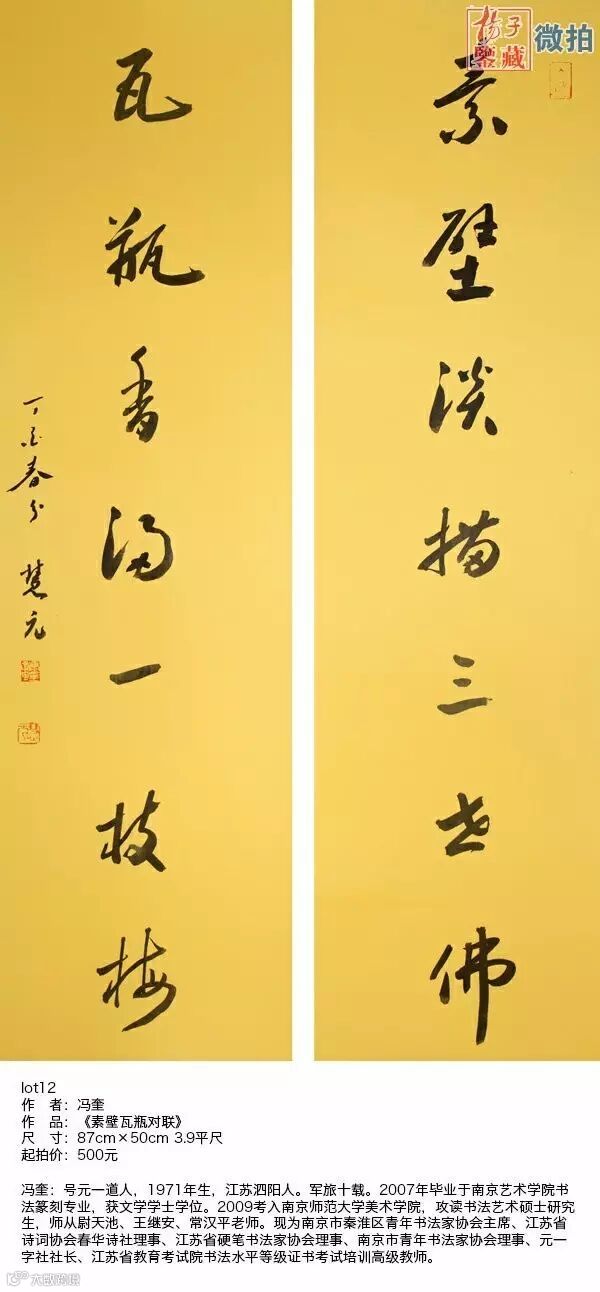 扬子鉴藏 微拍
素壁淡描三世佛
瓦瓶香浸一枝梅
丁酉春分 慧元
lot12
作 者：冯奎
作 品：《素壁瓦瓶对联》
尺 寸：87cm×50cm 3.9平尺
起拍价：500元
冯奎：号元一道人，1971年生，江苏泗阳人。军旅十载。2007年毕业于南京艺术学院书
法篆刻专业，获文学学士学位。2009考入南京师范大学美术学院，攻读书法艺术硕士研究
生，师从尉天池、王继安、常汉平老师。现为南京市秦淮区青年书法家协会主席、江苏省
诗词协会春华诗社理事、江苏省硬笔书法家协会理事、南京市青年书法家协会理事、元一
字社社长、江苏省教育考试院书法水平等级证书考试培训高级教师。
大数跨境